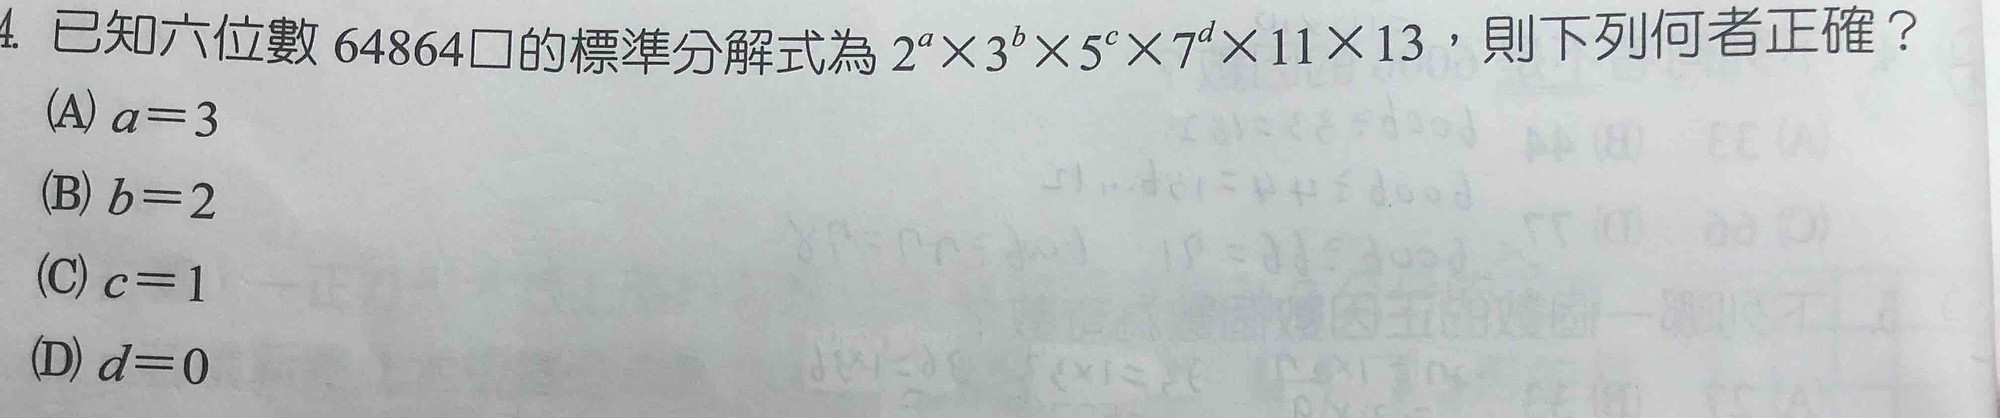 4. 已知六位數 64864□的標準分解式為 2ᵃ×3ᵇ×5ᶜ×7ᵈ×11×13，則下列何者正確？
(A) a＝3
(B) b＝2
(C) c＝1
(D) d＝0